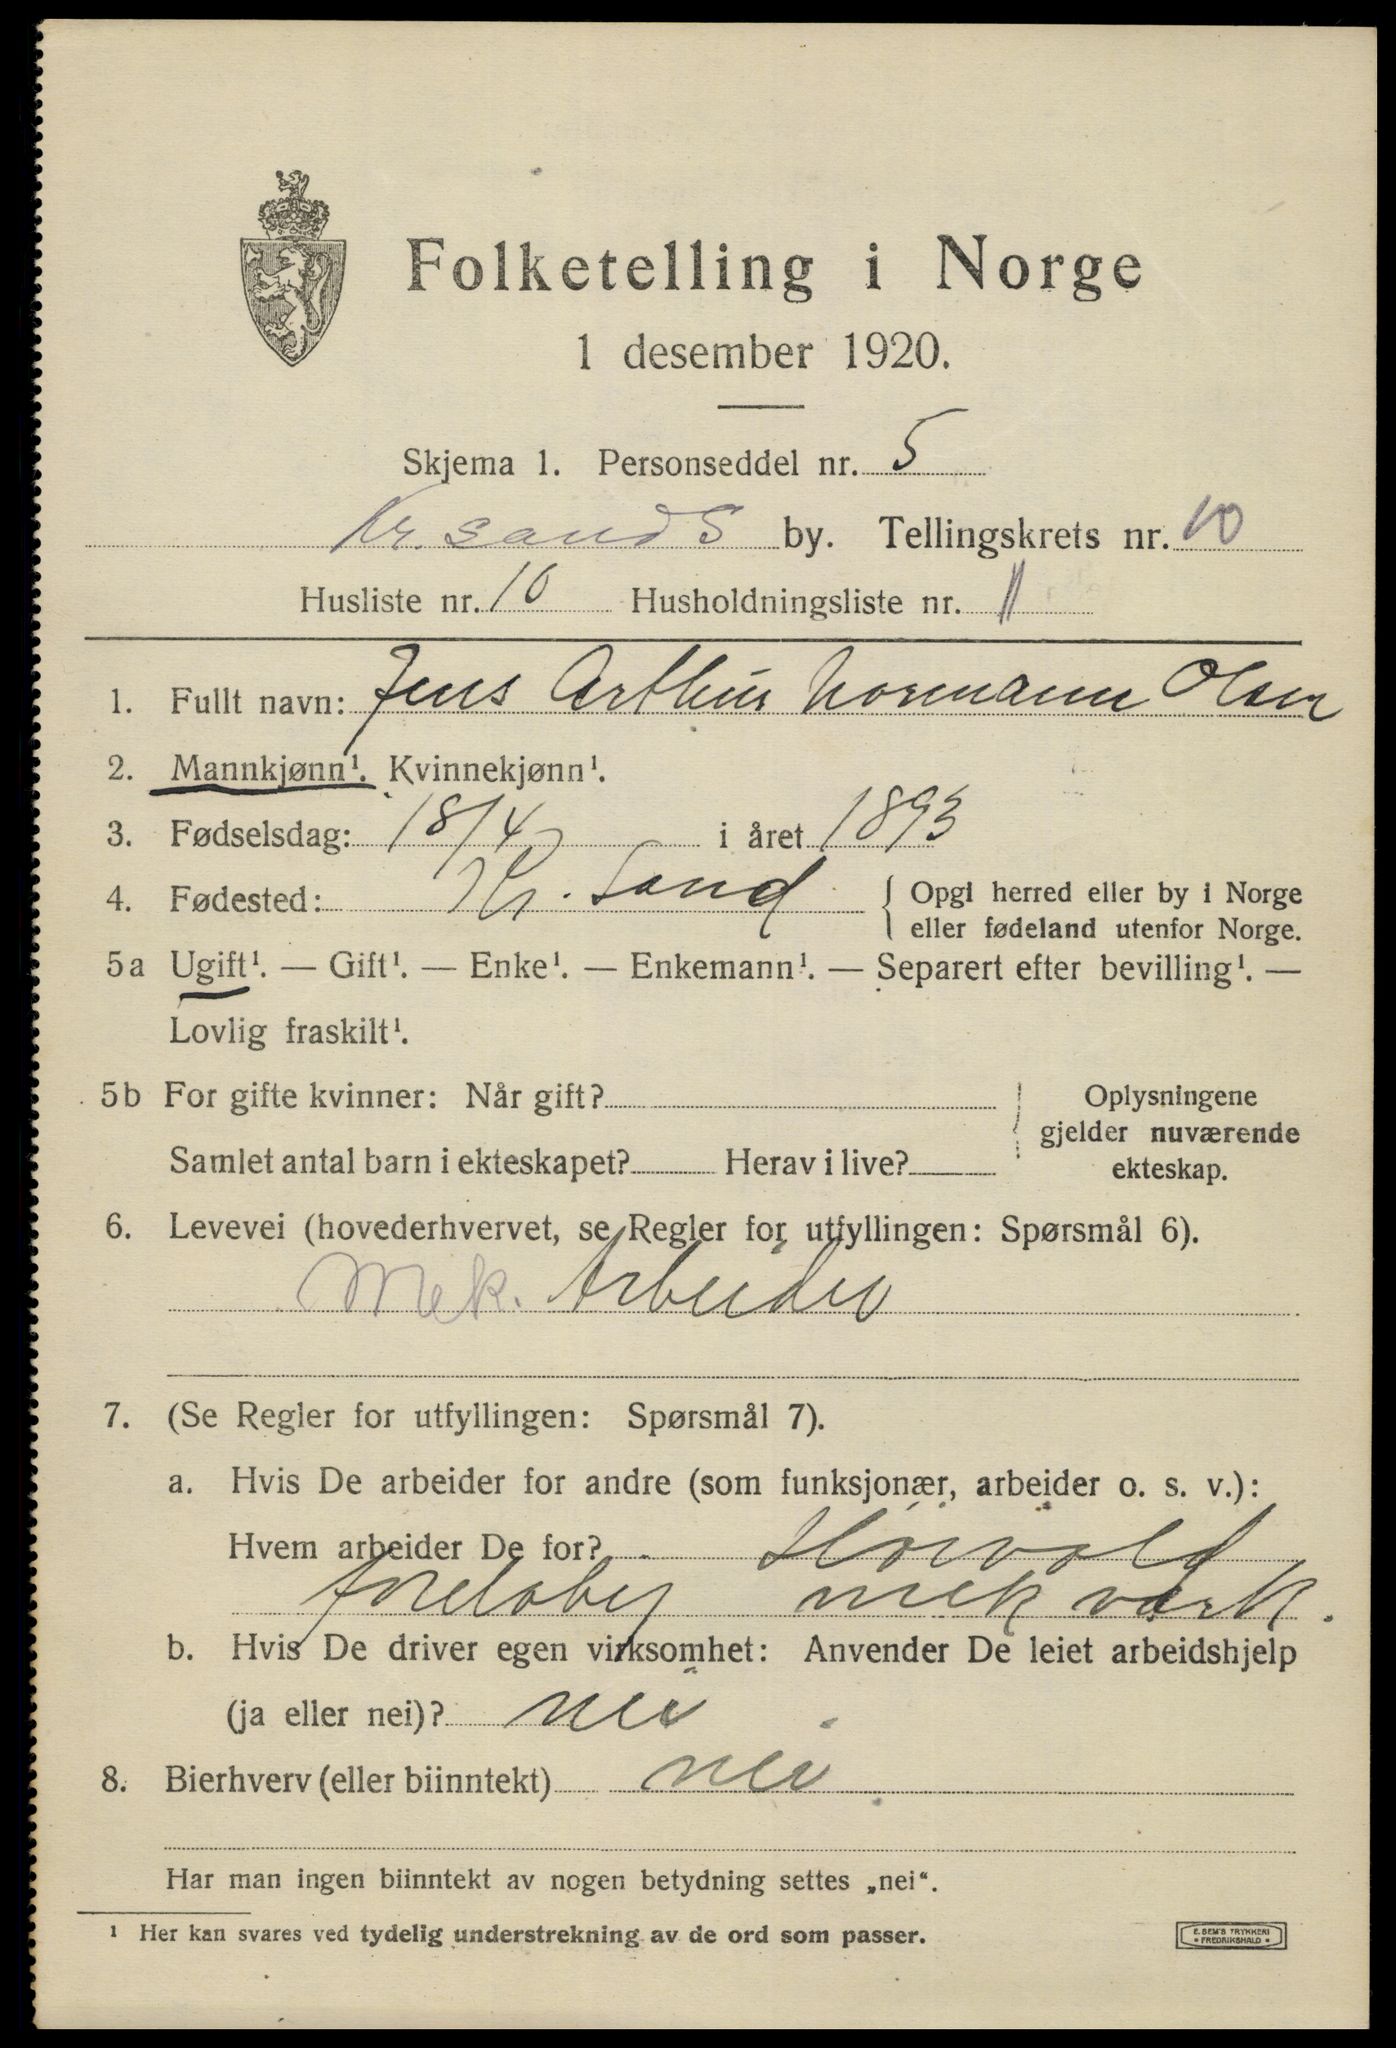 Folketelling i Norge
1 desember 1920.
Skjema 1. Personseddel nr. 5
Kr.sand S by. Tellingskrets nr. 10
Husliste nr. 10 Husholdningsliste nr. 11
1. Fullt navn: Jens Arthur Normann Olsen
2. Mannkjønn¹. Kvinnekjønn¹.
3. Fødselsdag: 18/4 i året 1893
4. Fødested: Kr. Sand { Opgi herred eller by i Norge
eller fødeland utenfor Norge.
5a Ugift¹. — Gift¹. — Enke¹. — Enkemann¹. — Separert efter bevilling¹. —
Lovlig fraskilt¹.
5b For gifte kvinner: Når gift? Oplysningene
gjelder nuværende
Samlet antal barn i ekteskapet? Herav i live? ekteskap.
6. Levevei (hovederhvervet, se Regler for utfyllingen: Spørsmål 6).
Mek. Arbeider
7. (Se Regler for utfyllingen: Spørsmål 7).
a. Hvis De arbeider for andre (som funksjonær, arbeider o. s. v.):
Hvem arbeider De for?
mek værk.
b. Hvis De driver egen virksomhet: Anvender De leiet arbeidshjelp
(ja eller nei)? nei
8. Bierhverv (eller biinntekt) nei
Har man ingen biinntekt av nogen betydning settes „nei“.
¹ Her kan svares ved tydelig understrekning av de ord som passer.
E. SEM'S TRYKKERI
• FREDRIKSHALD •